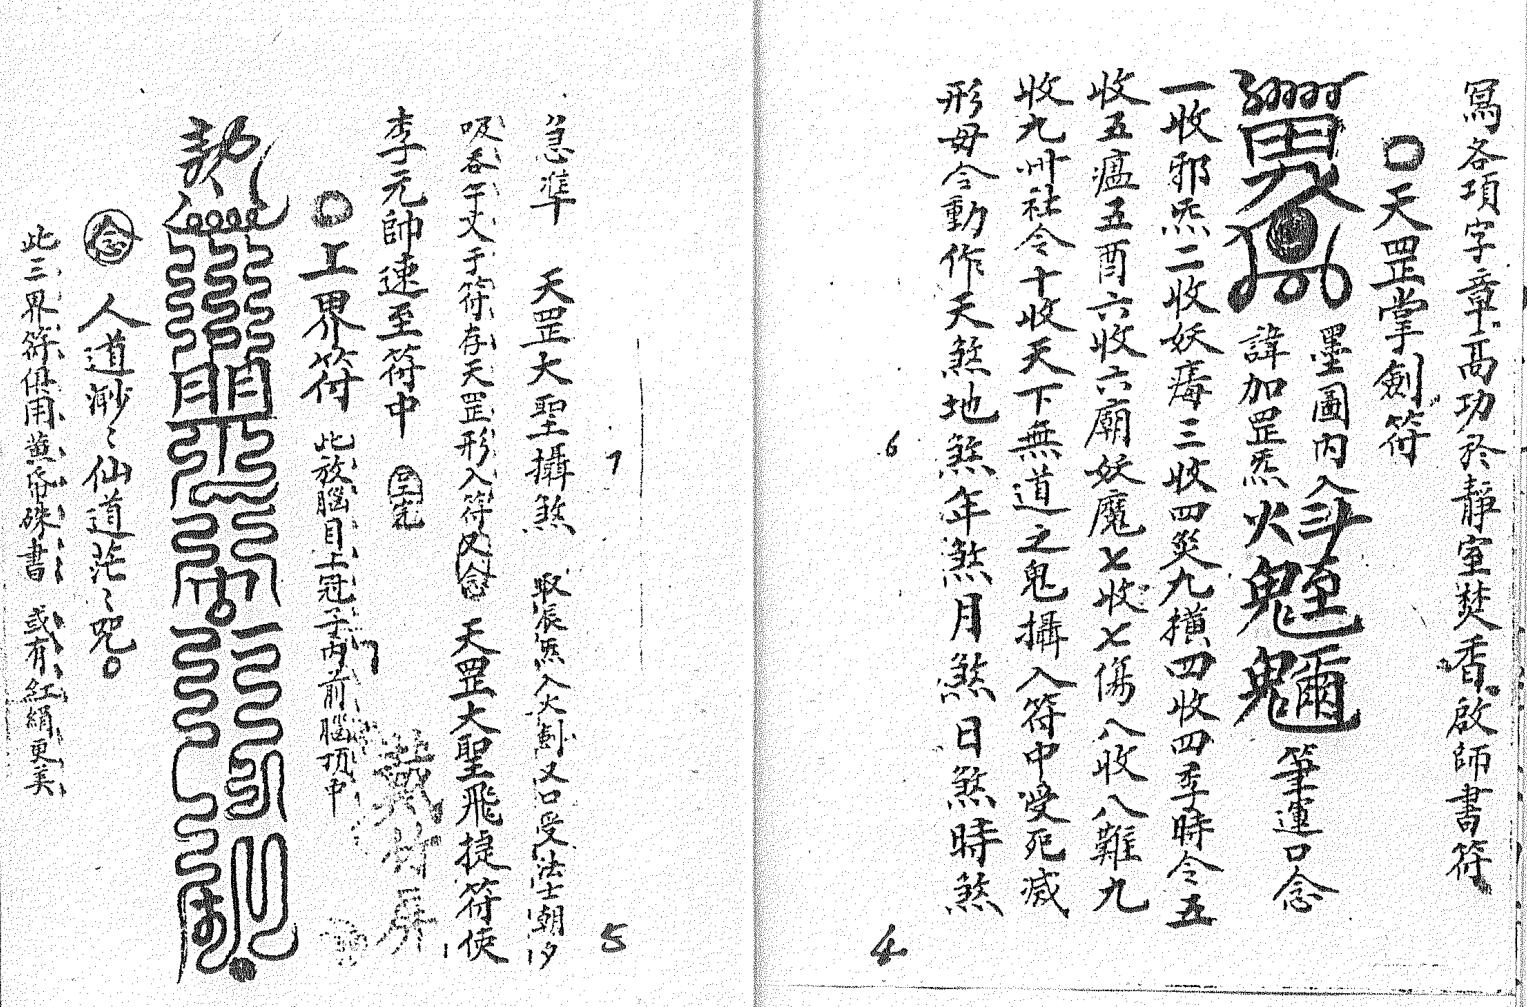 寫各項字章高功於靜室焚香啟師書符
○天罡掌劍符
墨圖內入斗
諱加罡炁火魁
筆運口念
一收邪炁二收妖毒三收四災九橫四收四季時令五
收五瘟五酉六收六廟妖魔七收七傷八收八難九
收九州社令十收天下無道之鬼攝入符中受死滅
形毋令動作天煞地煞年煞月煞日煞時煞
6
4
7
急準 天罡大聖攝煞 取辰炁入火劍又口受法士朝夕
吸吞午文于符存天罡形入符又念 天罡大聖飛捷符使
李元帥速至符中
○上界符 此放腦目上冠子內前腦頂中
念 人道渺〻仙道茫〻咒○
此三界符俱用黃帋硃書 或有紅絹更美
5